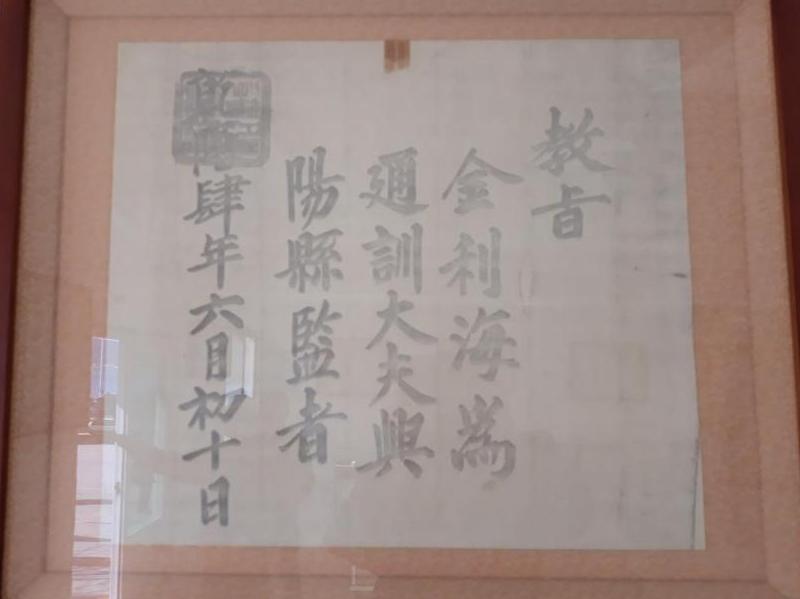 教旨
金利海爲
通訓大夫興
陽縣監者
肆年六月初十日